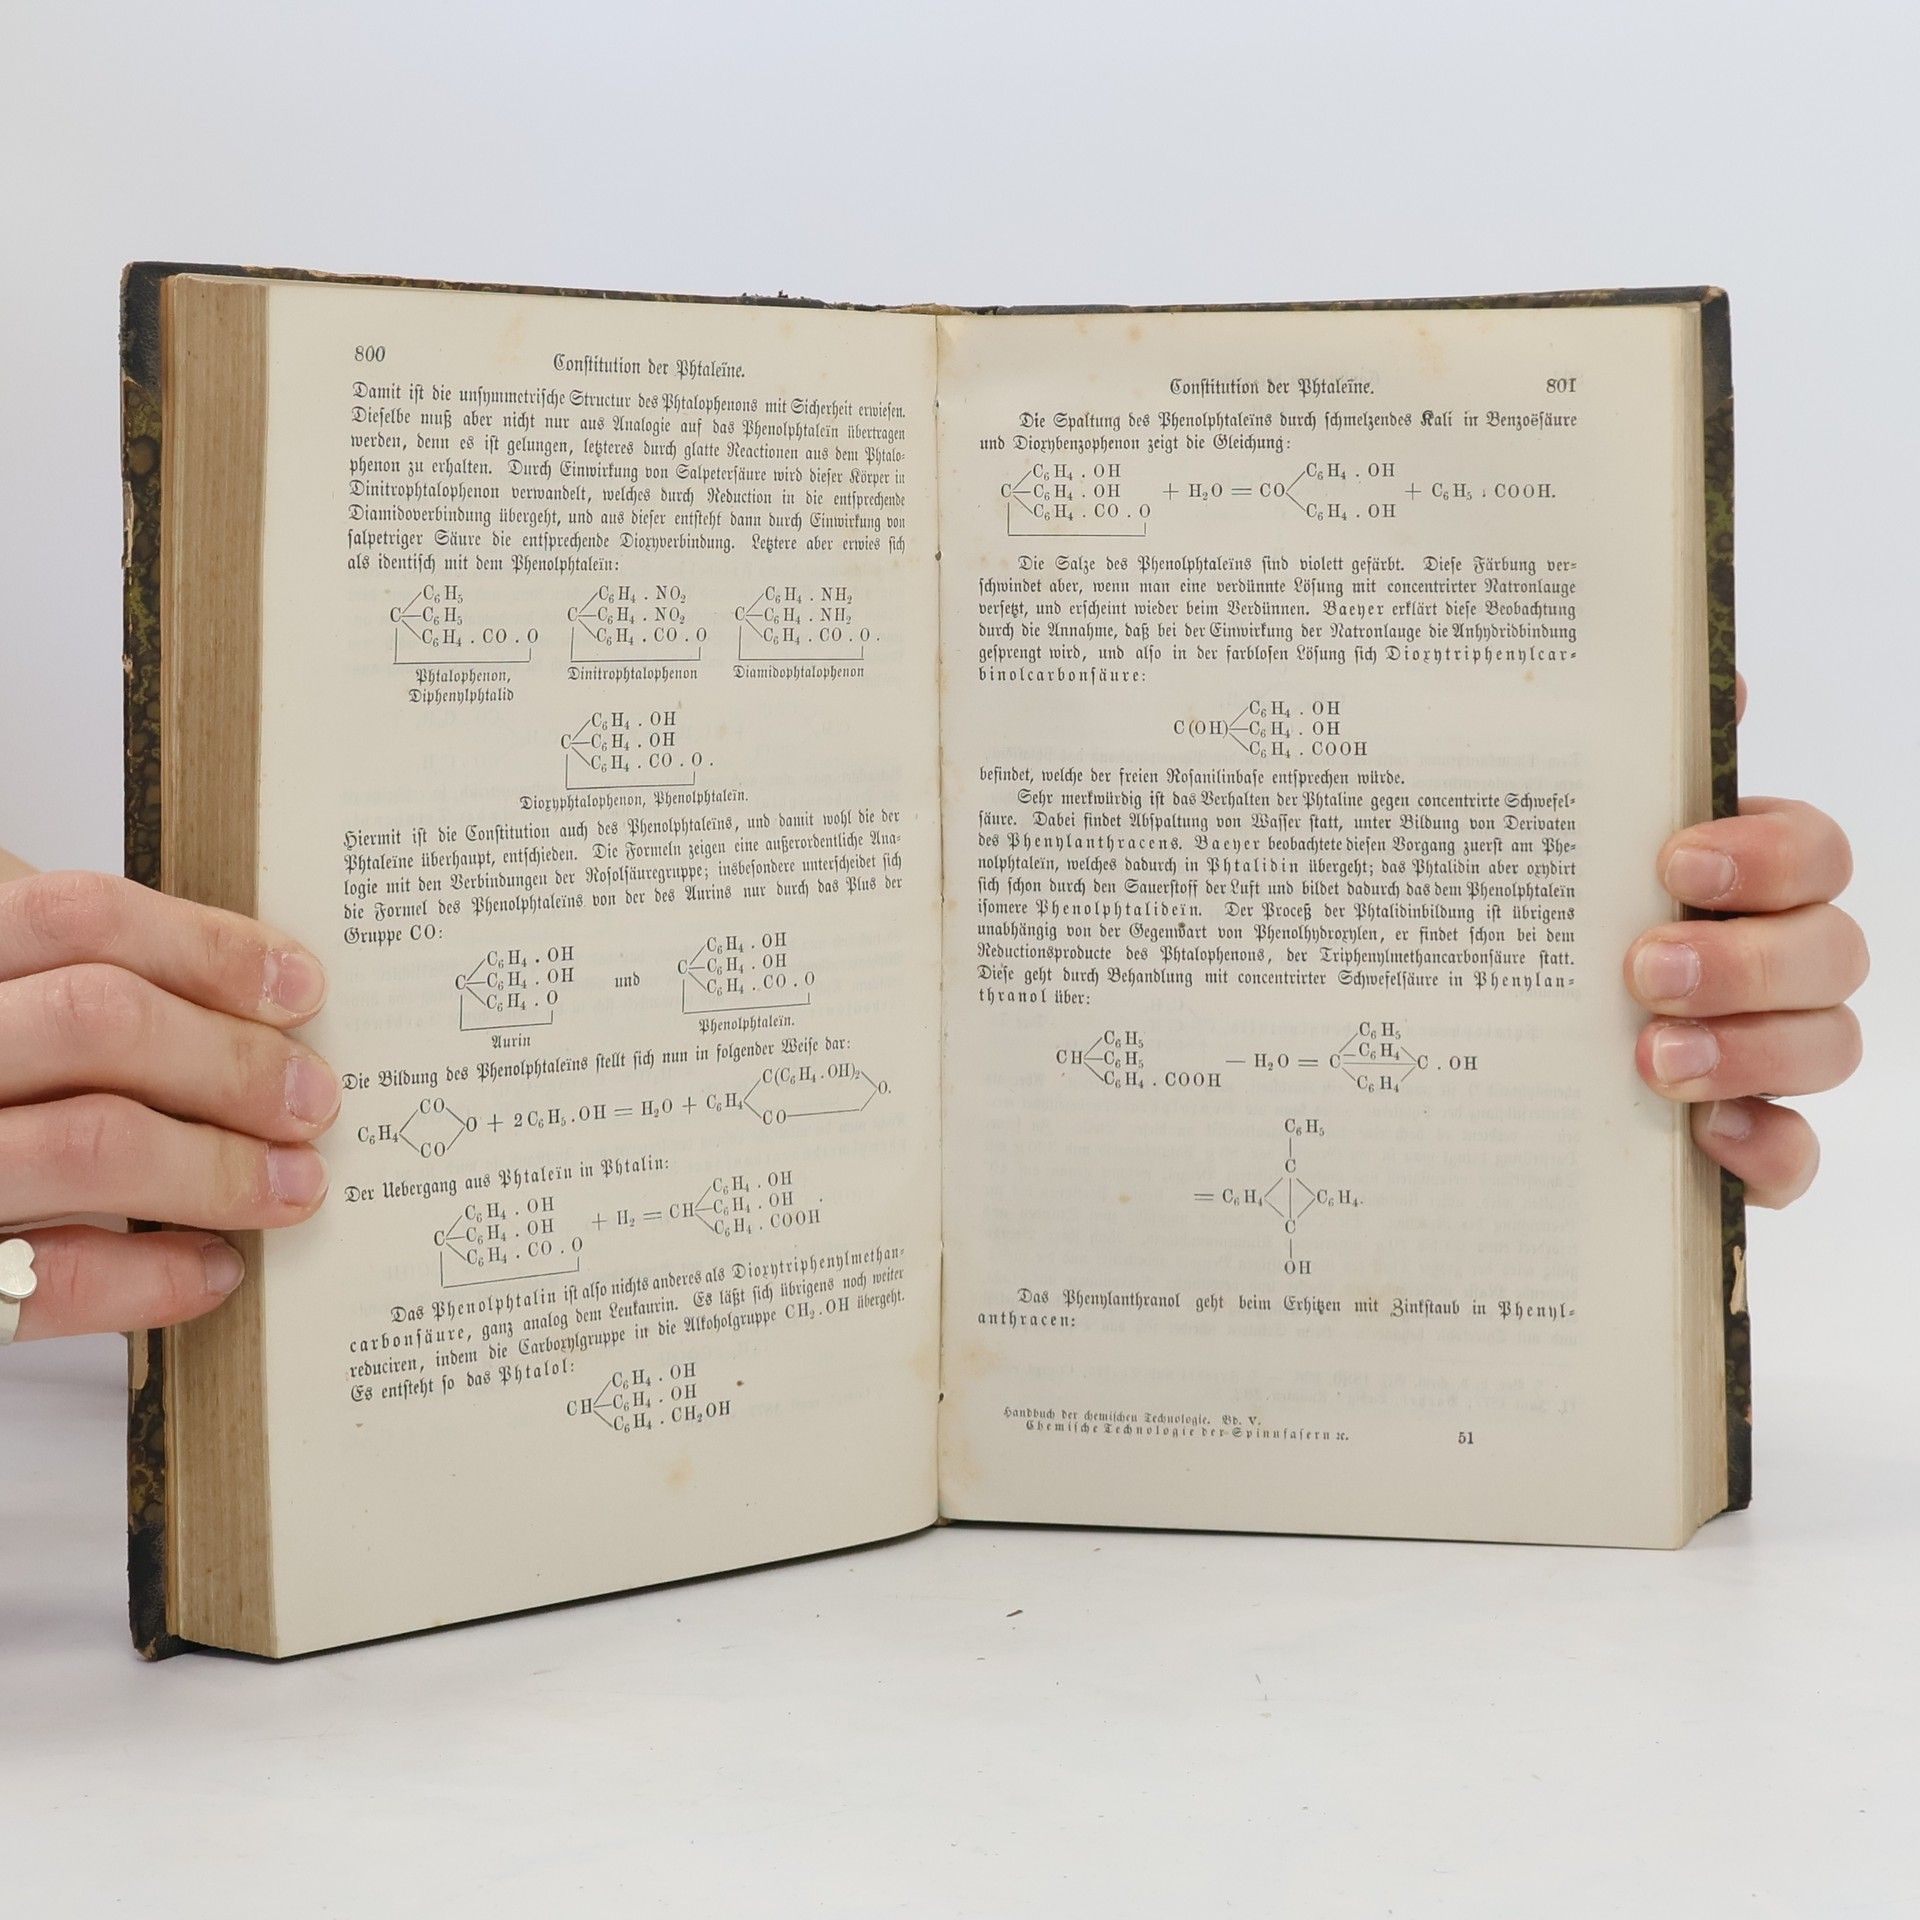 800
Constitution der Phtaleïne.
Damit ist die unsymmetrische Structur des Phtalophenons mit Sicherheit erwiesen.
Dieselbe muß aber nicht nur aus Analogie auf das Phenolphtaleïn übertragen
werden, denn es ist gelungen, letzteres durch glatte Reactionen aus dem Phtalo-
phenon zu erhalten. Durch Einwirkung von Salpetersäure wird dieser Körper in
Dinitrophtalophenon verwandelt, welches durch Reduction in die entsprechende
Diamidoverbindung übergeht, und aus dieser entsteht dann durch Einwirkung von
salpetriger Säure die entsprechende Dioxyverbindung. Letztere aber erwies sich
als identisch mit dem Phenolphtaleïn:
C₆H₅ C₆H₄ . NO₂ C₆H₄ . NH₂
C—C₆H₅ C—C₆H₄ . NO₂ C—C₆H₄ . NH₂
C₆H₄ . CO . O C₆H₄ . CO . O C₆H₄ . CO . O .
Phtalophenon, Dinitrophtalophenon Diamidophtalophenon
Diphenylphtalid
C₆H₄ . OH
C—C₆H₄ . OH
C₆H₄ . CO . O .
Dioxyphtalophenon, Phenolphtaleïn.
Hiermit ist die Constitution auch des Phenolphtaleïns, und damit wohl die der
Phtaleïne überhaupt, entschieden. Die Formeln zeigen eine außerordentliche Ana-
logie mit den Verbindungen der Rosolsäuregruppe; insbesondere unterscheidet sich
die Formel des Phenolphtaleïns von der des Aurins nur durch das Plus der
Gruppe CO:
C₆H₄ . OH C₆H₄ . OH
C—C₆H₄ . OH und C—C₆H₄ . OH
C₆H₄ . O C₆H₄ . CO . O
Aurin Phenolphtaleïn.
Die Bildung des Phenolphtaleïns stellt sich nun in folgender Weise dar:
CO C(C₆H₄ . OH)₂
C₆H₄ O + 2 C₆H₅ . OH = H₂O + C₆H₄ O.
CO CO
Der Uebergang aus Phtaleïn in Phtalin:
C₆H₄ . OH C₆H₄ . OH
C—C₆H₄ . OH + H₂ = CH—C₆H₄ . OH .
C₆H₄ . CO . O C₆H₄ . COOH
Das Phenolphtalin ist also nichts anderes als Dioxytriphenylmethan-
carbonsäure, ganz analog dem Leukaurin. Es läßt sich übrigens noch weiter
reduciren, indem die Carboxylgruppe in die Alkoholgruppe CH₂ . OH übergeht.
Es entsteht so das Phtalol:
C₆H₄ . OH
CH—C₆H₄ . OH
C₆H₄ . CH₂OH
Constitution der Phtaleïne. 801
Die Spaltung des Phenolphtaleïns durch schmelzendes Kali in Benzoësäure
und Dioxybenzophenon zeigt die Gleichung:
C₆H₄ . OH C₆H₄ . OH
C—C₆H₄ . OH + H₂O = CO + C₆H₅ . COOH.
C₆H₄ . CO . O C₆H₄ . OH
Die Salze des Phenolphtaleïns sind violett gefärbt. Diese Färbung ver-
schwindet aber, wenn man eine verdünnte Lösung mit concentrirter Natronlauge
versetzt, und erscheint wieder beim Verdünnen. Baeyer erklärt diese Beobachtung
durch die Annahme, daß bei der Einwirkung der Natronlauge die Anhydridbindung
gesprengt wird, und also in der farblosen Lösung sich Dioxytriphenylcar-
binolcarbonsäure:
C₆H₄ . OH
C(OH)—C₆H₄ . OH
C₆H₄ . COOH
befindet, welche der freien Rosanilinbase entsprechen würde.
Sehr merkwürdig ist das Verhalten der Phtaline gegen concentrirte Schwefel-
säure. Dabei findet Abspaltung von Wasser statt, unter Bildung von Derivaten
des Phenylanthracens. Baeyer beobachtete diesen Vorgang zuerst am Phe-
nolphtaleïn, welches dadurch in Phtalidin übergeht; das Phtalidin aber oxydirt
sich schon durch den Sauerstoff der Luft und bildet dadurch das dem Phenolphtaleïn
isomere Phenolphtalideïn. Der Proceß der Phtalidinbildung ist übrigens
unabhängig von der Gegenwart von Phenolhydroxylen, er findet schon bei dem
Reductionsproducte des Phtalophenons, der Triphenylmethancarbonsäure statt.
Diese geht durch Behandlung mit concentrirter Schwefelsäure in Phenylan-
thranol über:
C₆H₅ C₆H₅
CH—C₆H₅ — H₂O = C—C₆H₄ C . OH
C₆H₄ . COOH C₆H₄
C₆H₅
C
= C₆H₄ C₆H₄.
C
OH
Das Phenylanthranol geht beim Erhitzen mit Zinkstaub in Phenyl-
anthracen:
Handbuch der chemischen Technologie. Bd. V.
Chemische Technologie der Spinnfasern ꝛc. 51